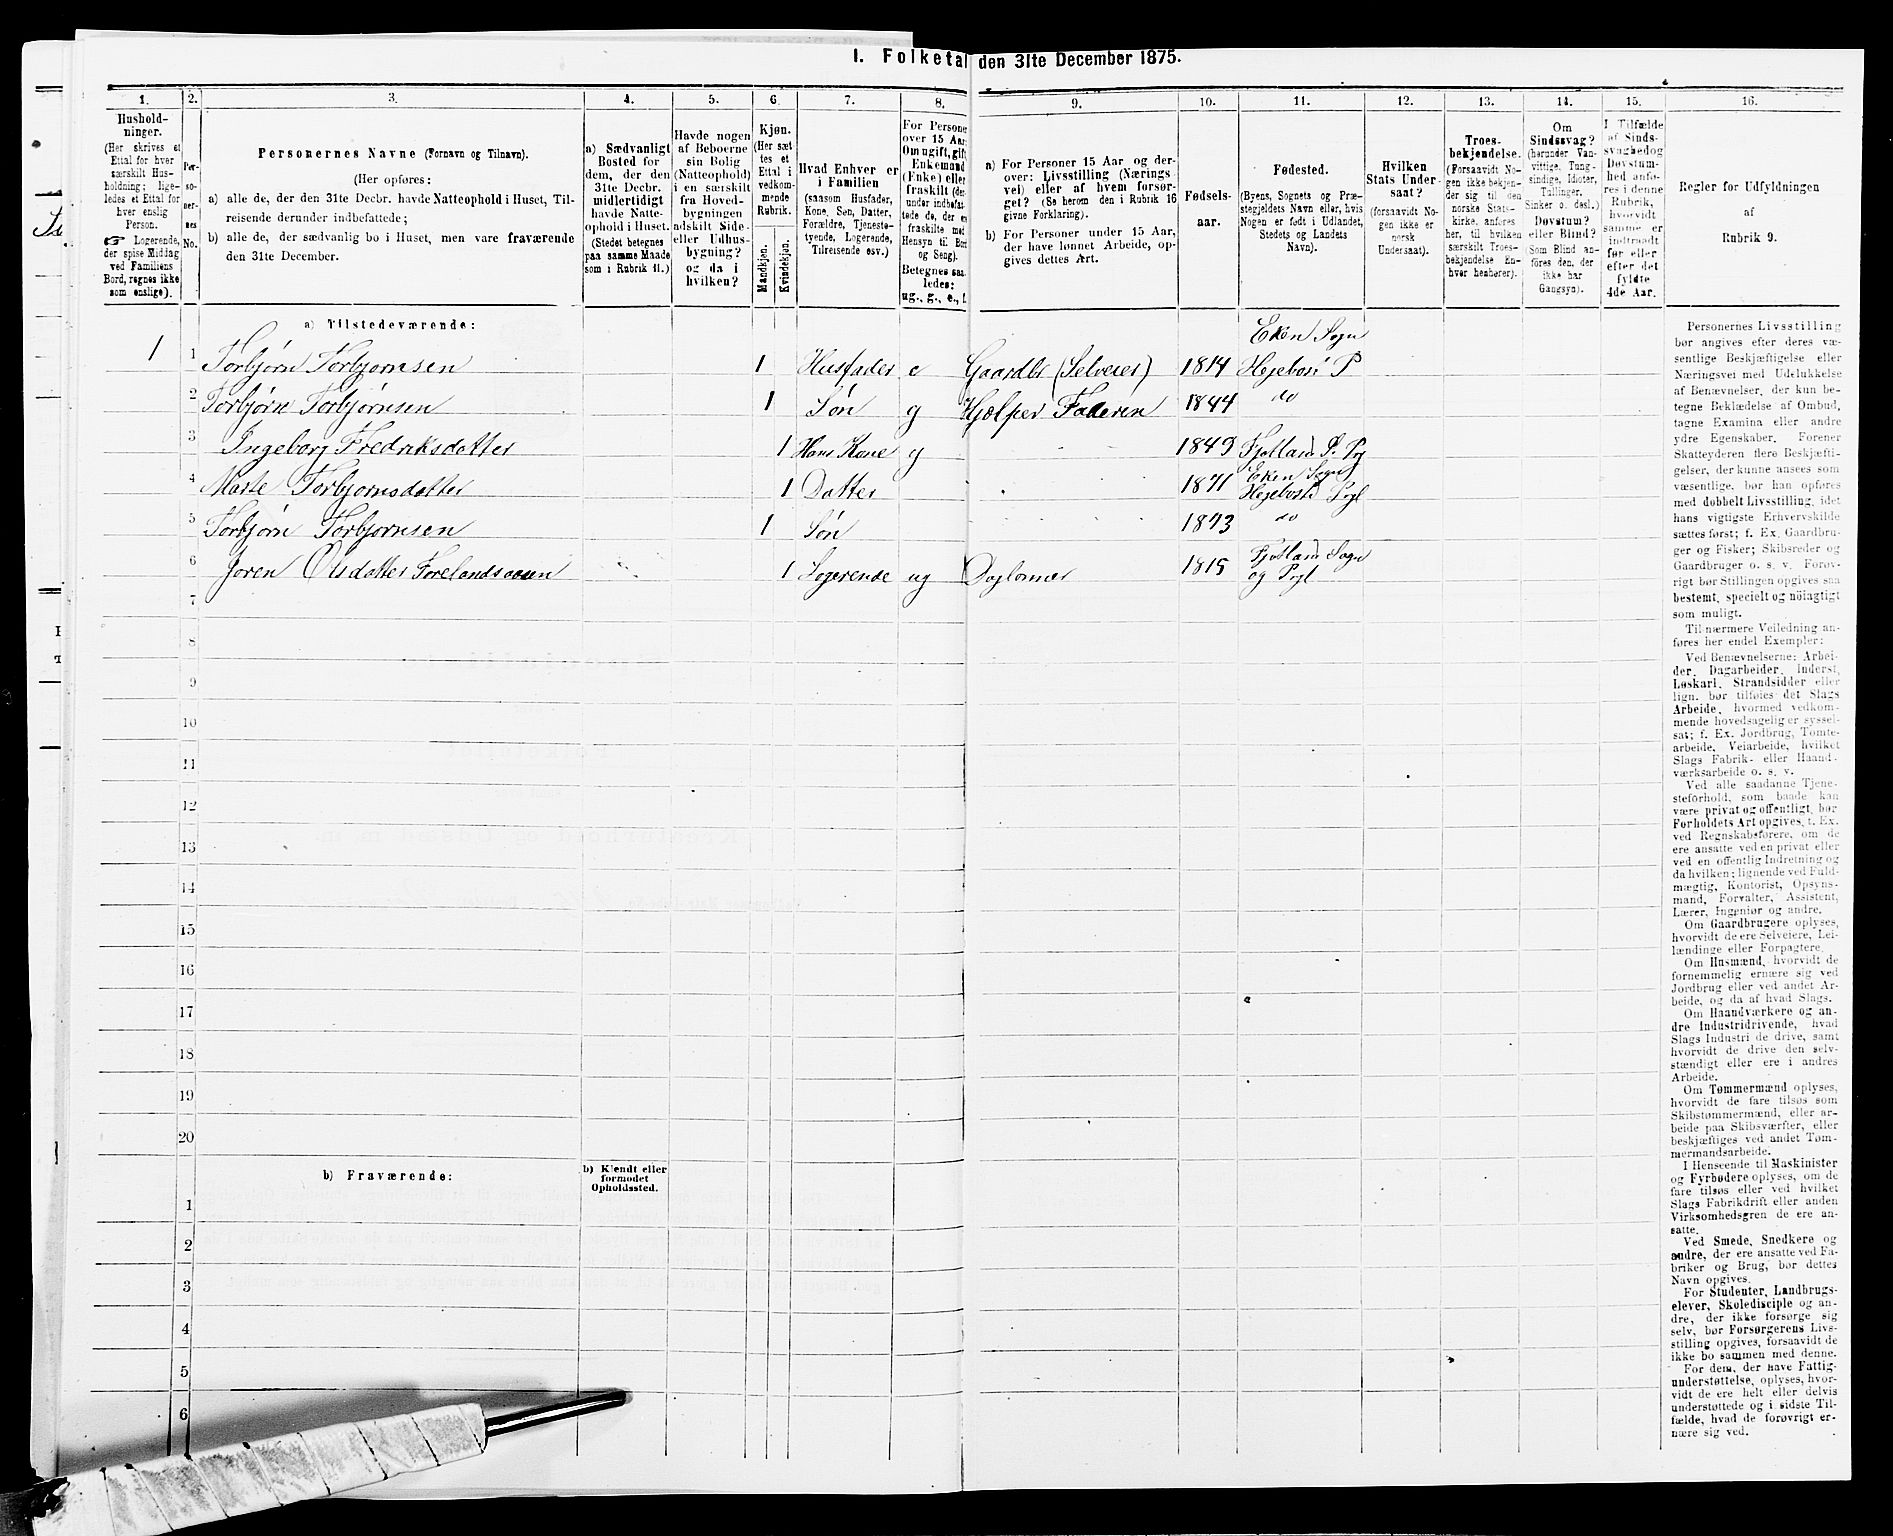 I. Folketal den 31te December 1875.
1. 2. 3. 4. 5. 6. 7. 8. 9. 10. 11. 12. 13. 14. 15. 16.
Hushold-
ninger.
(Her skrives et
Ettal for hver
særskilt Hus-
holdning; lige-
ledes et Ettal for
hver enslig
Person.
☞ Logerende,
der spise Middag
ved Familiens
Bord, regnes ikke
som enslige).
Per-
so-
ner-
nes
No.
Personernes Navne (Fornavn og Tilnavn).
(Her opføres:
a) alle de, der den 31te Decbr. havde Natteophold i Huset, Til-
reisende derunder indbefattede;
b) alle de, der sædvanlig bo i Huset, men vare fraværende
den 31te December.
a) Sædvanligt
Bosted for
dem, der den
31te Decbr.
midlertidigt
havde Natte-
ophold i Huset.
(Stedet betegnes
paa samme Maade
som i Rubrik 11.)
Havde nogen
af Beboerne
sin Bolig
(Natteophold)
i en særskilt
fra Hoved-
bygningen
adskilt Side-
eller Udhus-
bygning?
og da i
hvilken?
Kjøn.
(Her sæt
tes et
Ettal i
vedkom-
mende
Rubrik.
Mandkjøn.
Kvindekjøn.
Hvad Enhver er
i Familien
(saasom Husfader,
Kone, Søn, Datter,
Forældre, Tjeneste-
tyende, Logerende,
Tilreisende osv.)
For Persone
over 15 Aar
Om ugift, gift
Enkemand
(Enke) eller
fraskilt (der
under indbefat-
tede de, der e
fraskilte med
Hensyn til Bord
og Seng).
Betegnes saa
ledes:
ug., g., e., f.
a) For Personer 15 Aar og der-
over: Livsstilling (Nærings-
vei) eller af hvem forsør-
get? (Se herom den i Rubrik 16
givne Forklaring).
b) For Personer under 15 Aar,
der have lønnet Arbeide, op-
gives dettes Art.
Fødsels-
aar.
Fødested.
(Byens, Sognets og Præ-
stegjeldets Navn eller, hvis
Nogen er født i Udlandet,
Stedets og Landets
Navn).
Hvilken
Stats Under-
saat?
(forsaavidt No-
gen ikke er
norsk
Undersaat).
Troes-
bekjendelse.
(Forsaavidt No-
gen ikke bekjen-
der sig til den
norske Stats-
kirke, anføres
her, til hvilken
særskilt Troes-
bekjendelse En-
hver henhører).
Om
Sindssvag?
(herunder Van-
vittige, Tung-
sindige, Idioter,
Tillinger,
Sinker o. desl.)
Døvstum?
eller Blind?
(Som Blind an-
føres den, der
ikke har
Gangsyn).
I Tilfælde
af Sinds-
svaghed og
Døvstum-
hed anfø-
res i denne
Rubrik,
hvorvidt
samme er
indtraadt
før eller
efter det
fyldte
4de Aar.
Regler for Udfyldningen
af
Rubrik 9.
a) Tilstedeværende:
1 1 Torbjørn Torbjørnsen 1 Husfader e Gaardbr (Selveier) 1814 Eken Sogn Hejebost P
2 Torbjørn Torbjørnsen 1 Søn g Hjælper Faderen 1844 do
3 Ingeborg Fredriksdatter 1 Hans Kone g 1849 Fjotland S. Pg
4 Marte Torbjørnsdatter 1 Datter 1871 Eken Sogn Hejebost Pgl
5 Torbjørn Torbjørnsen 1 Søn 1873 do
6 Joren Olsdatter Forelandsaasen 1 Logerende ug Daglønner 1815 Fjotland Sogn og Pgl
7
8
9
10
11
12
13
14
15
16
17
18
19
20
b) Fraværende:
b) Kjendt eller
formodet
Opholdssted.
1
2
3
4
5
6
Personernes Livsstilling
bør angives efter deres væ-
sentlige Beskjæftigelse eller
Næringsvei med Udelukkelse
af Benævnelser, der kun be-
tegne Beklædelse af Ombud,
tagne Examina eller andre
ydre Egenskaber. Forener
Skatteyderen flere Beskjæfti-
gelser, der kunne ansees som
væsentlige, bør han opføres
med dobbelt Livsstilling, idet
hans vigtigste Erhvervskilde
sættes først; f. Ex. Gaardbru-
ger og Fisker; Skibsreder og
Gaardbruger o. s. v. Forøv-
rigt bør Stillingen opgives saa
bestemt, specielt og nöiagtigt
som muligt.
Til nærmere Veiledning an-
føres her endel Exempler:
Ved Benævnelserne: Arbei-
der, Dagarbeider, Inderst,
Løskarl, Strandsidder eller
lign. bør tilføies det Slags
Arbeide, hvormed vedkom-
mende hovedsagelig er syssel-
sat; f. Ex. Jordbrug, Tomte-
arbeide, Veiarbeide, hvilket
Slags Fabrik- eller Haand-
værksarbeide o. s. v.
Ved alle saadanne Tjene-
steforhold, som baade kan
være privat og offentligt, bør
Forholdets Art opgives, f. Ex.
ved Regnskabsførere, om de
ere ansatte ved en privat eller
ved en offentlig Indretning og
da hvilken; lignende ved Fuld-
mægtig, Kontorist, Opsyns-
mand, Forvalter, Assistent,
Lærer, Ingeniør og andre.
Om Gaardbrugere oplyses,
hvorvidt de ere Selveiere, Lei-
lændinge eller Forpagtere.
Om Husmænd, hvorvidt de
fornemmelig ernære sig ved
Jordbrug eller ved andet Ar-
beide, og da af hvad Slags.
Om Haandværkere og an-
dre Industridrivende, hvad
Slags Industri de drive, samt
hvorvidt de drive den selv-
stændigt eller ere i andres
Arbeide.
Om Tømmermænd oplyses,
hvorvidt de fare tilsøs som
Skibstømmermænd, eller ar-
beide paa Skibsværfter, eller
beskjæftiges ved andet Tøm-
mermandsarbeide.
I Henseende til Maskinister
og Fyrbødere oplyses, om de
fare tilsøs eller ved hvilket
Slags Fabrikdrift eller anden
Virksomhedsgren de ere an-
satte.
Ved Smede, Snedkere og
andre, der ere ansatte ved Fa-
briker og Brug, bør dettes
Navn opgives.
For Studenter, Landbrugs-
elever, Skoledisciple og an-
dre, der ikke forsørge sig
selv, bør Forsørgerens Livs-
stilling opgives, forsaavidt de
ikke bo sammen med denne.
For dem, der have Fattig-
understøttelse, oplyses, hvor-
vidt de ere helt eller delvis
understøttede og i sidste Til-
fælde, hvad de forøvrigt er-
nære sig ved.